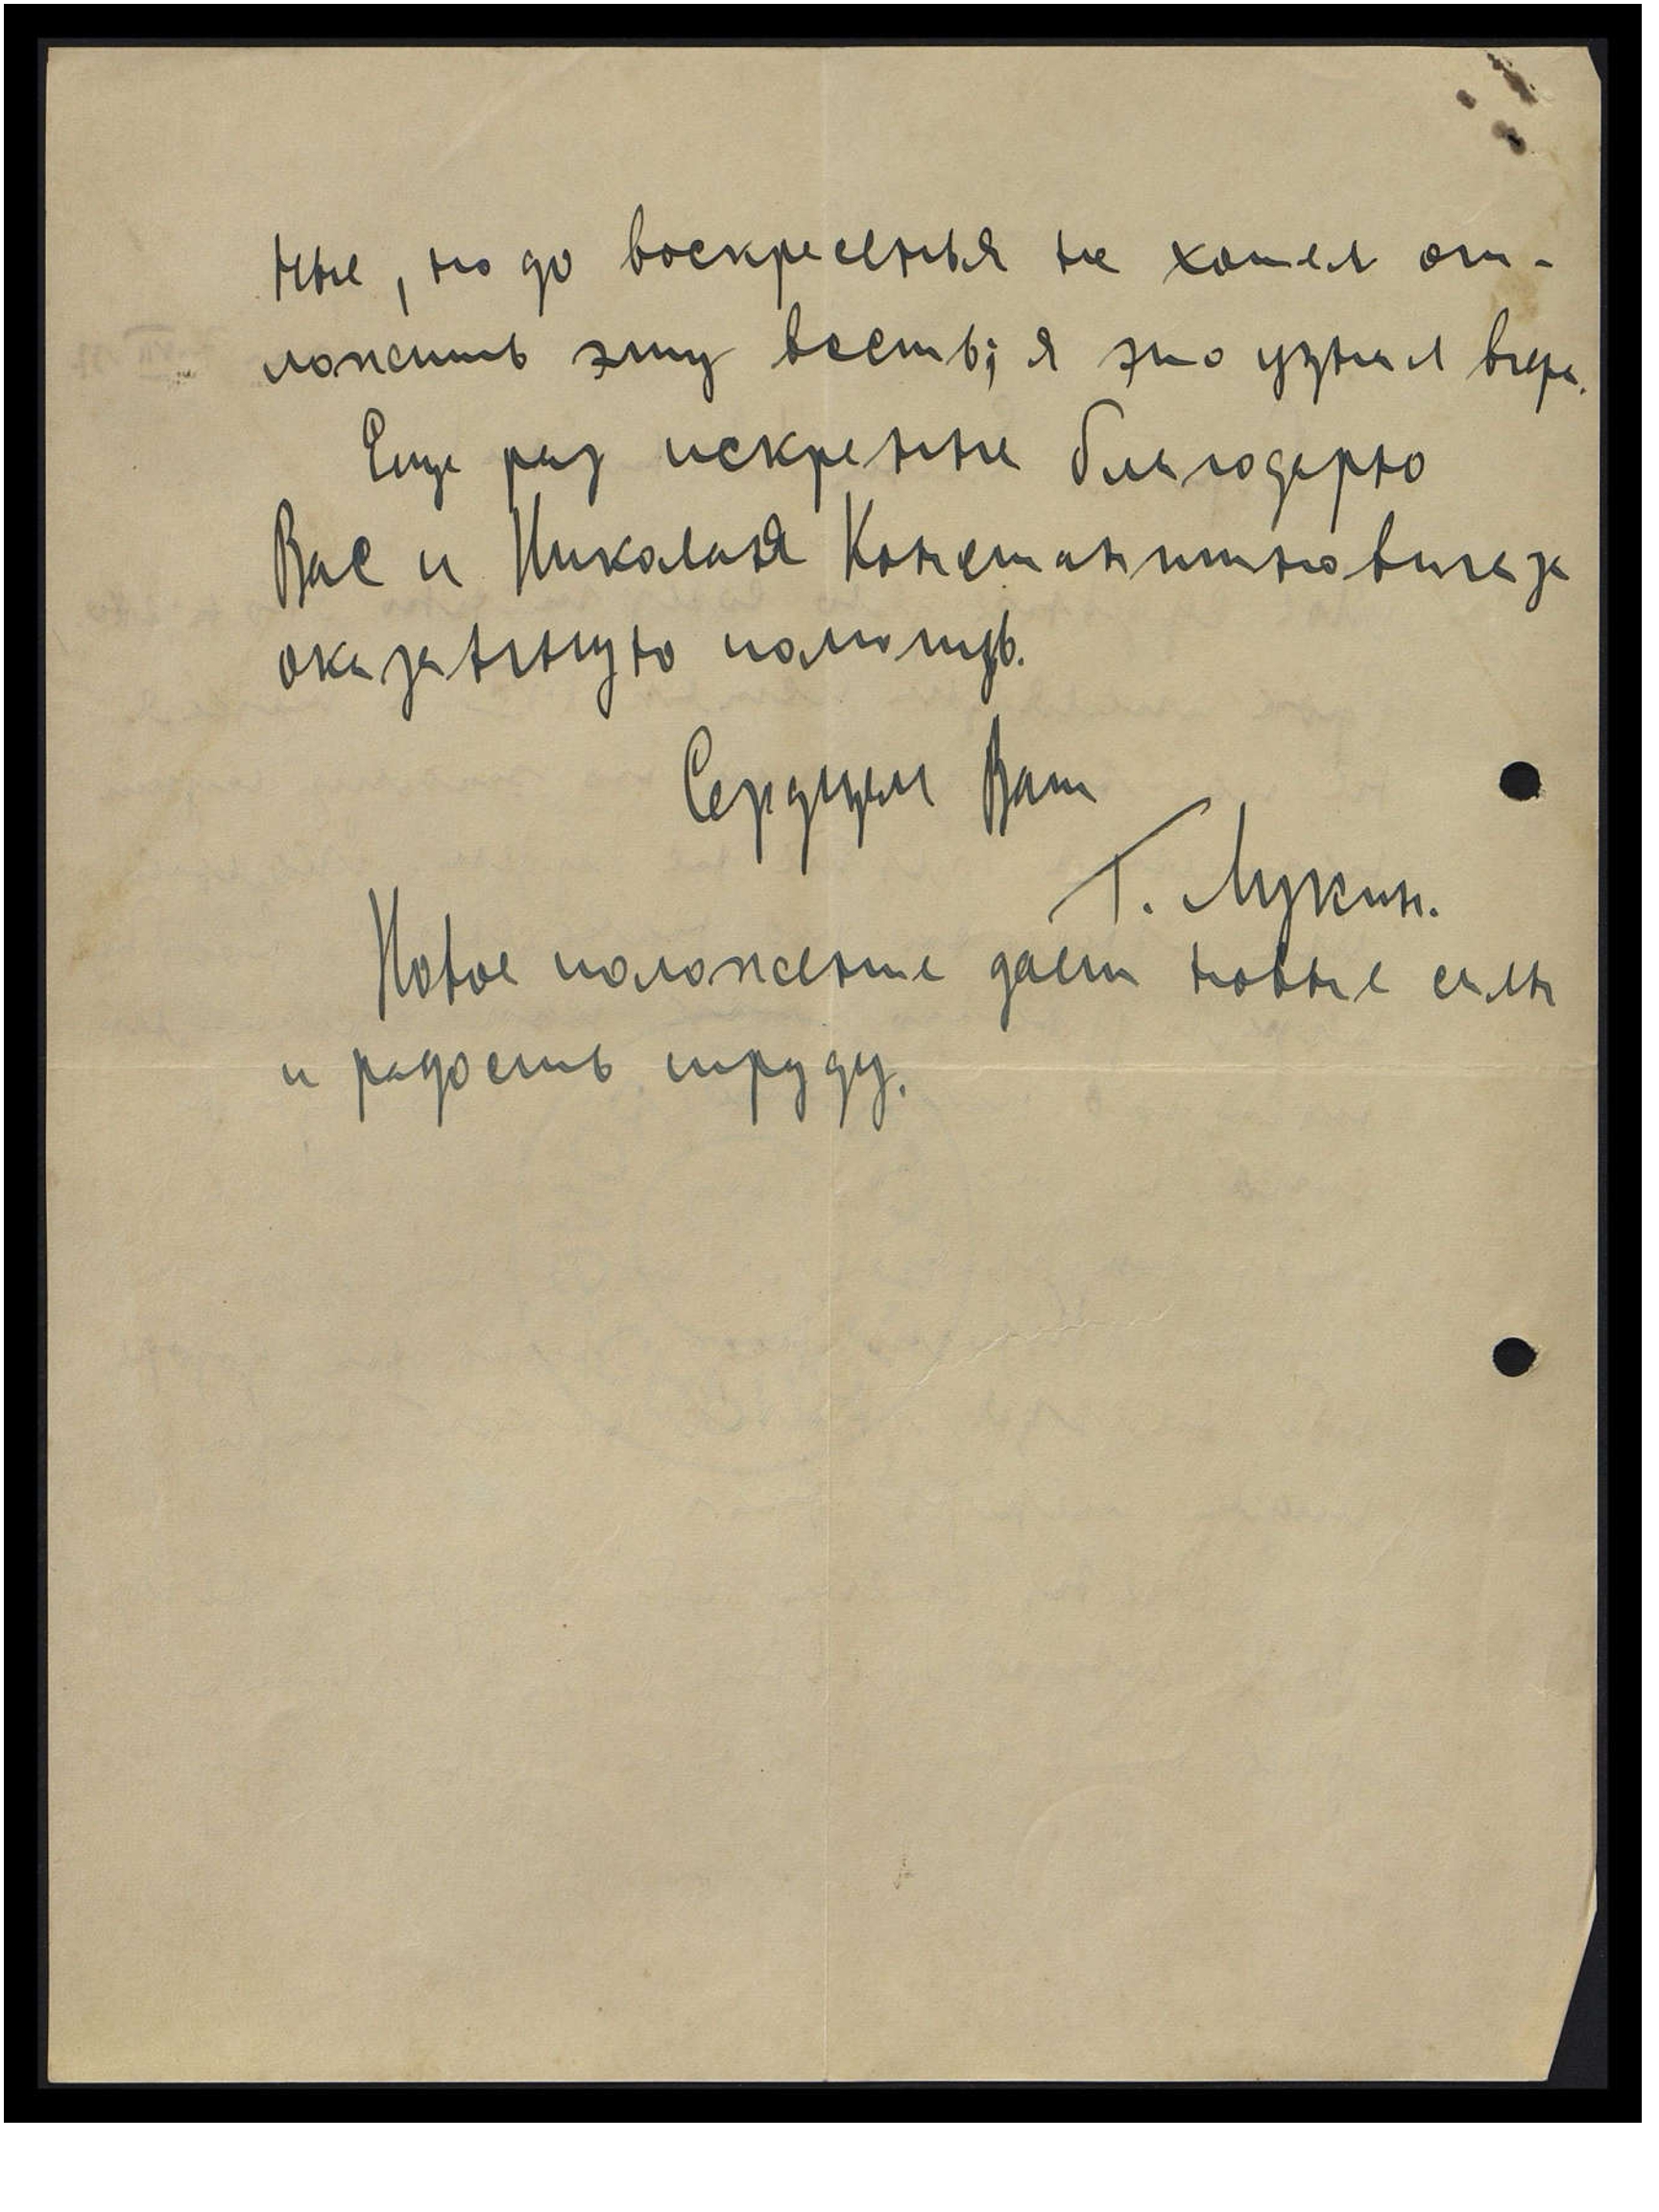 ные, но до воскресенья не хотел от-
ложить эту весть; я это узнал вчера.
Еще раз искренне благодарю
Вас и Николая Константиновича за
оказанную помощь.
Сердцем Ваш
Г. Лукин.
Новое положение дает новые силы
и радость труду.